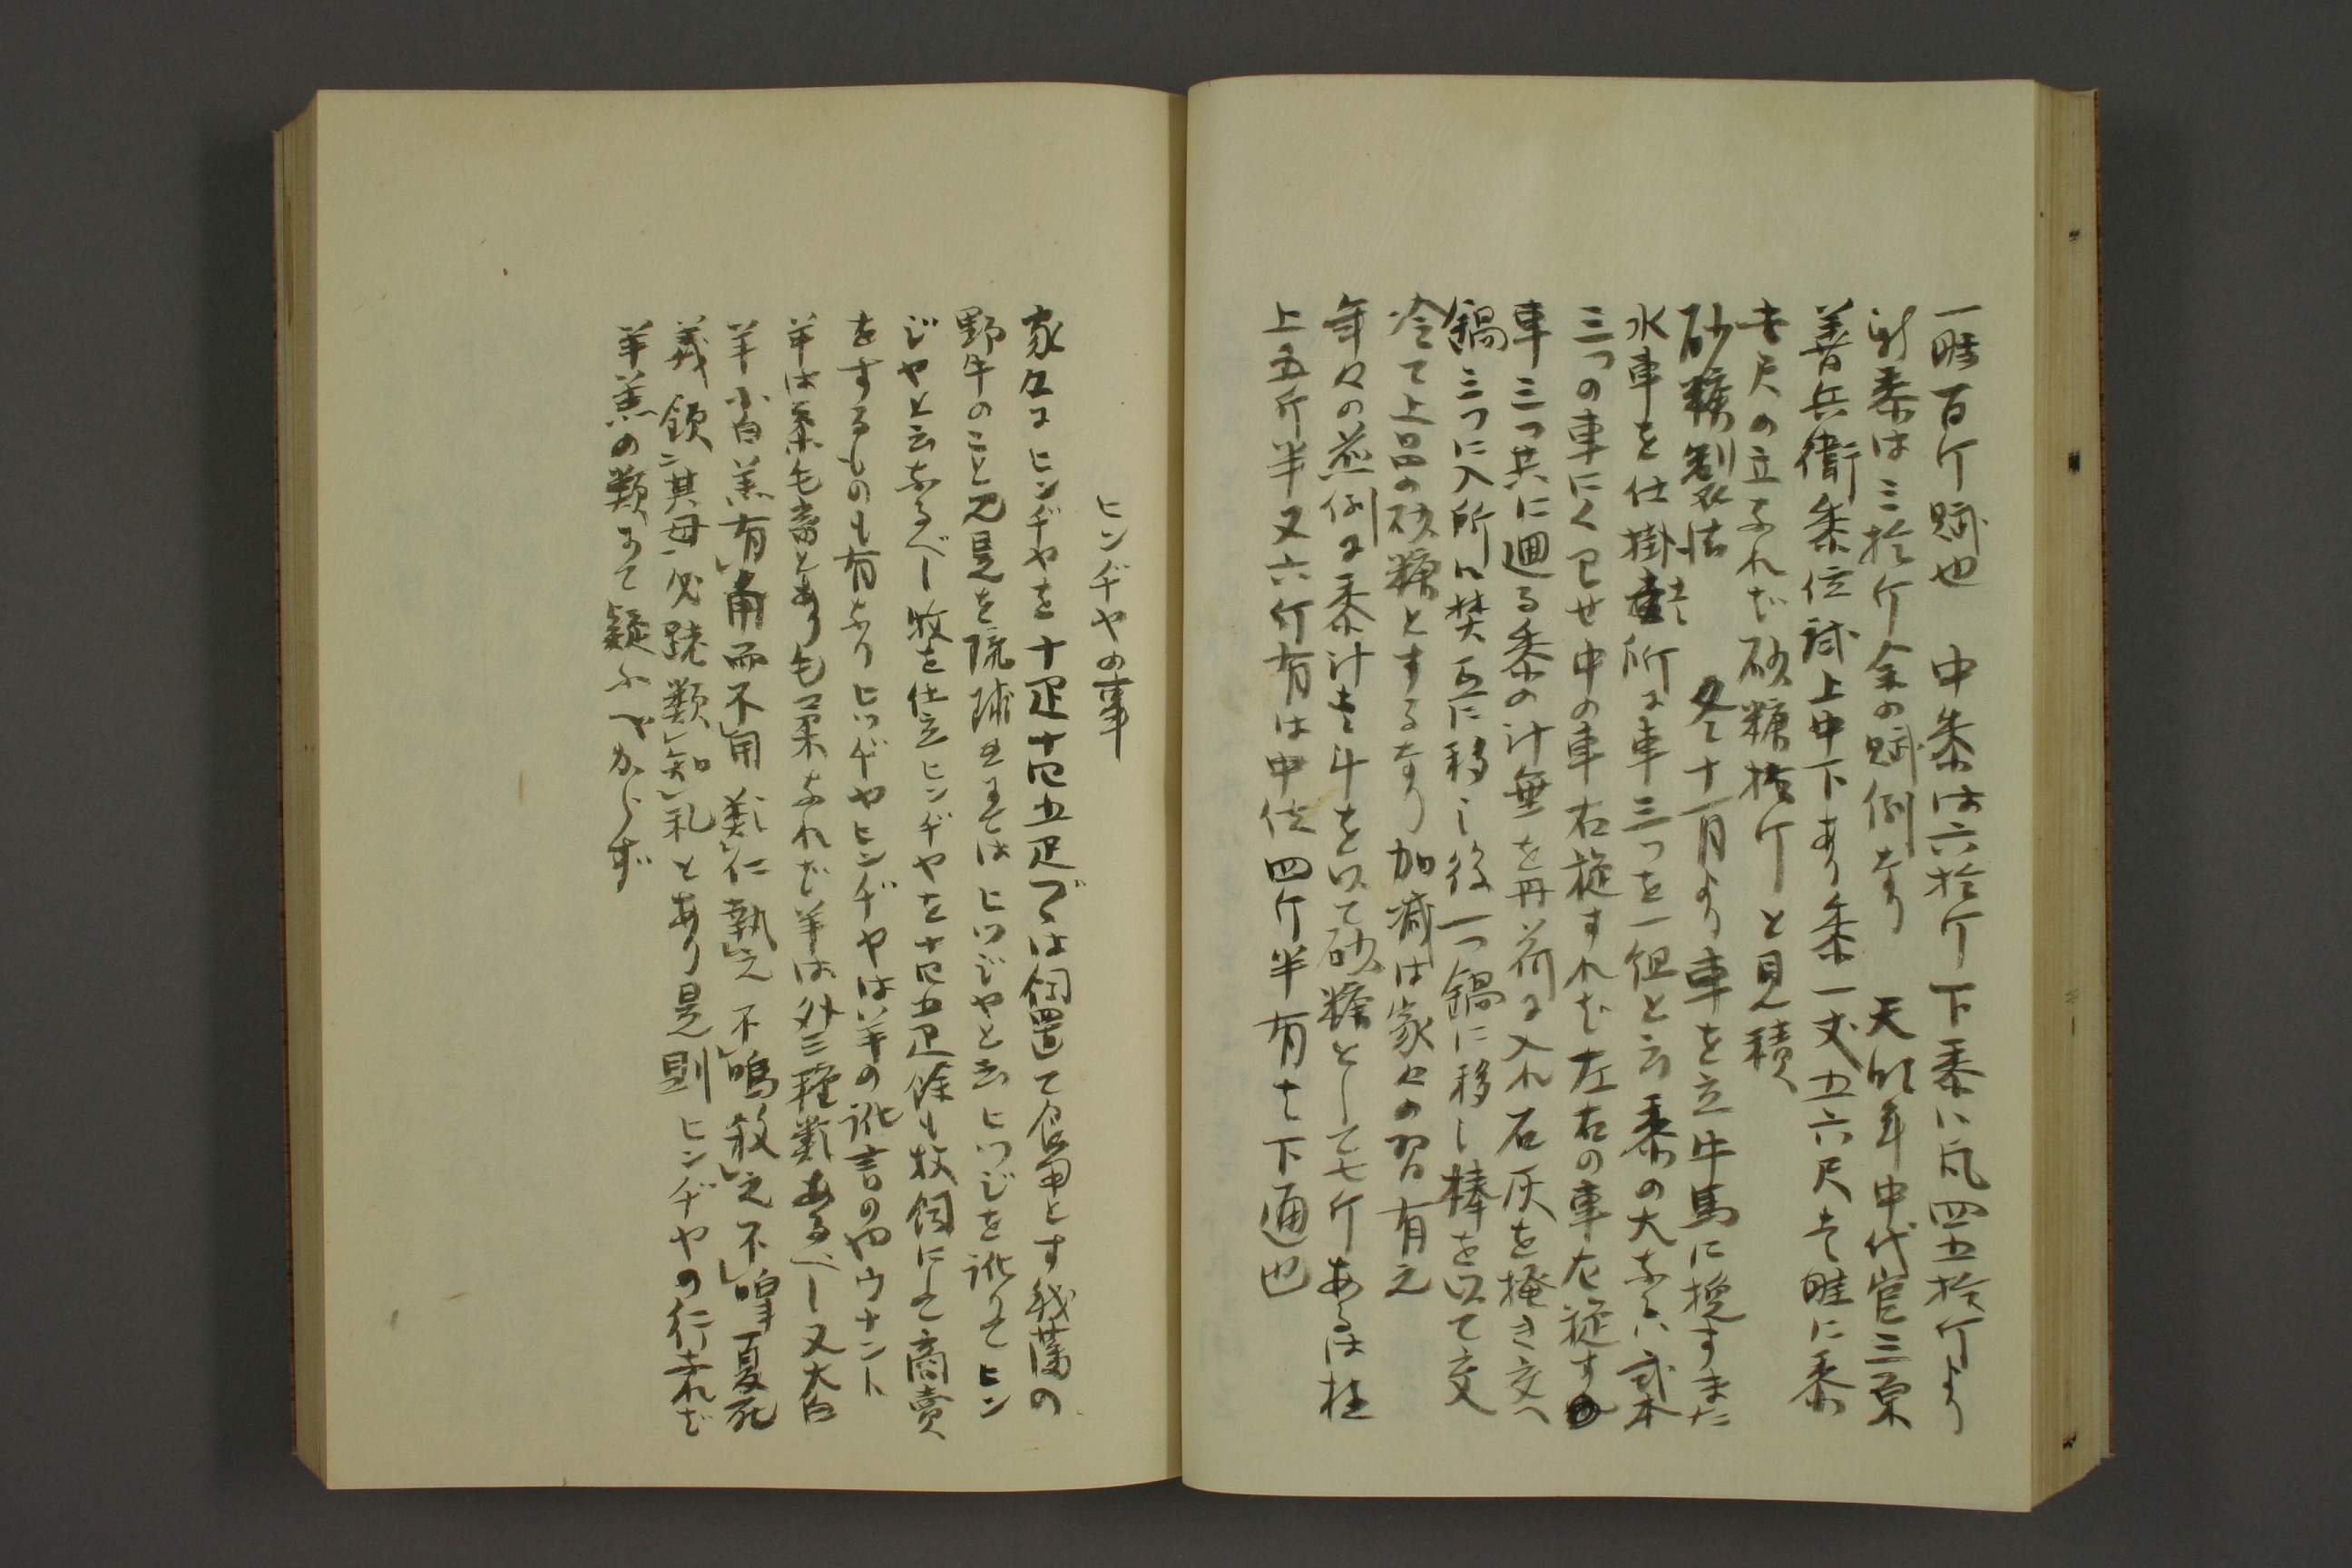 一畦百斤賦也　中黍は六拾斤下黍ハ凡四五拾斤より
新黍は三拾斤余の賦例なり　天明年中代官三原
善兵衛黍位試上中下あり黍一丈五六尺壱畦に黍
壱尺の立なれど砂糖拾斤と見積
砂糖製法　冬十一月より車を立牛馬に挽すまた
水車を仕掛所は車三つを一組と云黍の大なるハ弐本
三つの車にくワせ中の車右旋すれど左右の車左旋す
車三つ共に廻る黍の汁垂を丹荷に入れ石灰を掩き交へ
鍋三つに入所ハ焚互に移し後一つ鍋に移し棒を以て交
冷て上品の砂糖とするなり加減は家々の習有之
年々の煎例は黍汁壱斗を以て砂糖として七斤あるは極
上五斤半又六斤有は中位四斤半有を下通也
ヒンヂヤの事
家々にヒンヂヤを十疋十四五疋づゝは飼置て食用とす我藩の
野牛のこと見是を琉球口にてはヒツジヤと云ヒツジを訛てヒン
ジヤと云なるべし牧を仕立ヒンヂヤを十四五疋余も牧飼にて商売
をするものも有なりヒツヂヤヒンヂヤは羊の訛言のやウナント
羊は柔毛畜とあり毛柔なれど羊は外三種類あるべし又大白
羊小白羔有角而不用類仁執之不鳴殺之不嘷夏死
義領其母必跪類知礼とあり是則ヒンヂヤの行なれど
羊羔の類にて疑ふべからず